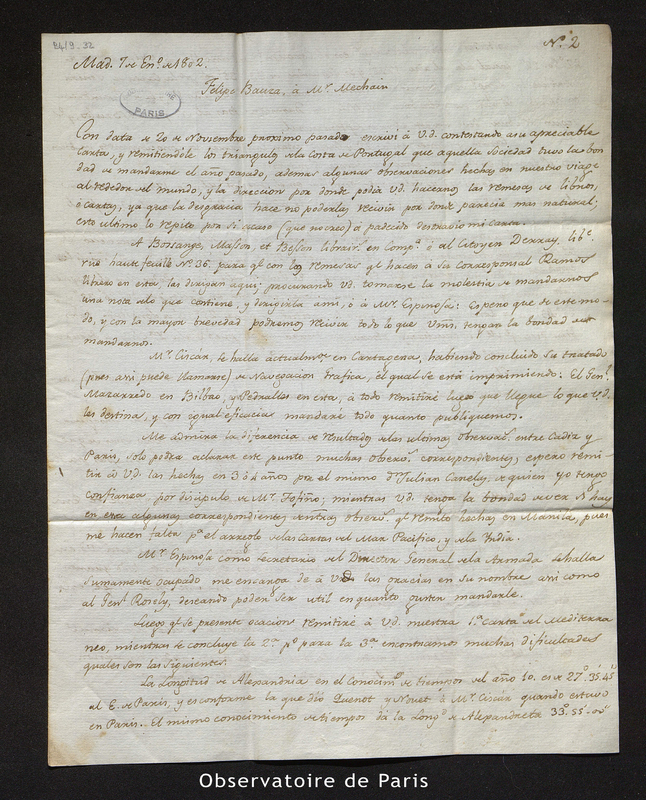 24/9-32
Nº 2
Mad. 7 de Enº de 1802.
Felipe Bauza, à Mr. Mechain
PARIS
Con data de 20 de Noviembre proximo pasado escrivi à V.d. contestando a su apreciable
Carta, y remitiendole los triangulos de la Costa de Portugal que aquella Sociedad tuvo la bon
dad de mandarme el año pasado, ademas algunas observaciones hechas en nuestro viage
al rededor del mundo, y la direccion por donde podia Vd. hacernos las remesas de libros,
ó Cartas, ya que la desgracia hace no poderlas recivir por donde parecia mas natural;
esto ultimo lo repito por si acaso (que no creo) á padecido destravio mi Carta.
A Bossange, Masson, et Besson librair. en Compª ó al Citoyen Derray. libº
rue haute feuille Nº 36. para qe con los remesas qe hacen à su Corresponsal Ramos
librero en esta, las dirijan aqui; procurando Vd. tomarse la molestia de mandarnos
una nota de lo que contiene, y dirigirla ami, ó à Mr. Espinosa: Espero que de este mo-
do, y con la mayor brevedad podremos recivir todo lo que Vms. tengan la bondad de
mandarnos.
Mr. Ciscár, se halla actualmte en Cartagena, habiendo concluido su tratado
(pues asi puede llamarse) de Navegacion Grafica, el qual se está imprimiendo: El Genl.
Mazarredo en Bilbao, y Pedrallas en esta, à todo remitiré luego que llegue lo que V.d.
les destina, y con igual eficacia mandaré todo quanto publiquemos.
Me admira la diferencia de resultados de las ultimas observac. entre Cadiz y
Paris, solo podra aclarar este punto muchas observs. correspondientes; espero remi-
tir à Vd. las hechas en 3 ó 4 años por el mismo Dn. Julian Canelas, de quien yo tengo
Confianza, por discipulo de Mr. Tofiño; mientras Vd. tenga la bondad de ver si hay
en esta algunas correspondientes à nuestras observs. qe remito hechas en Manila, pues
me hacen falta pª el arreglo de las Cartas del Mar Pacifico, y de la India.
Mr. Espinosa como Secretario del Director General de la Armada se halla
sumamente ocupado, me encarga de à Vd. las gracias en su nombre asi como
al Genl. Rosely, deseando poder ser util en quanto gusten mandarle.
Luego qe se presente ocacion remitiré à Vd. nuestra 1ª Carta del Mediterra
neo, mientras se concluye la 2ª, pº para la 3ª encontramos muchas dificultades
quales son las siguientes.
La Longitud de Alexandria en el Conocimº de tiempos del año 10. es de 27º.35'.45"
al E. de Paris, y es conforme la que dió Quenot y Nouet à Mr. Ciscár quando estuvo
en Paris. El mismo conocimiento de tiempos dá la Longd. de Alexandreta 33º.55'.05"
Observatoire de Paris